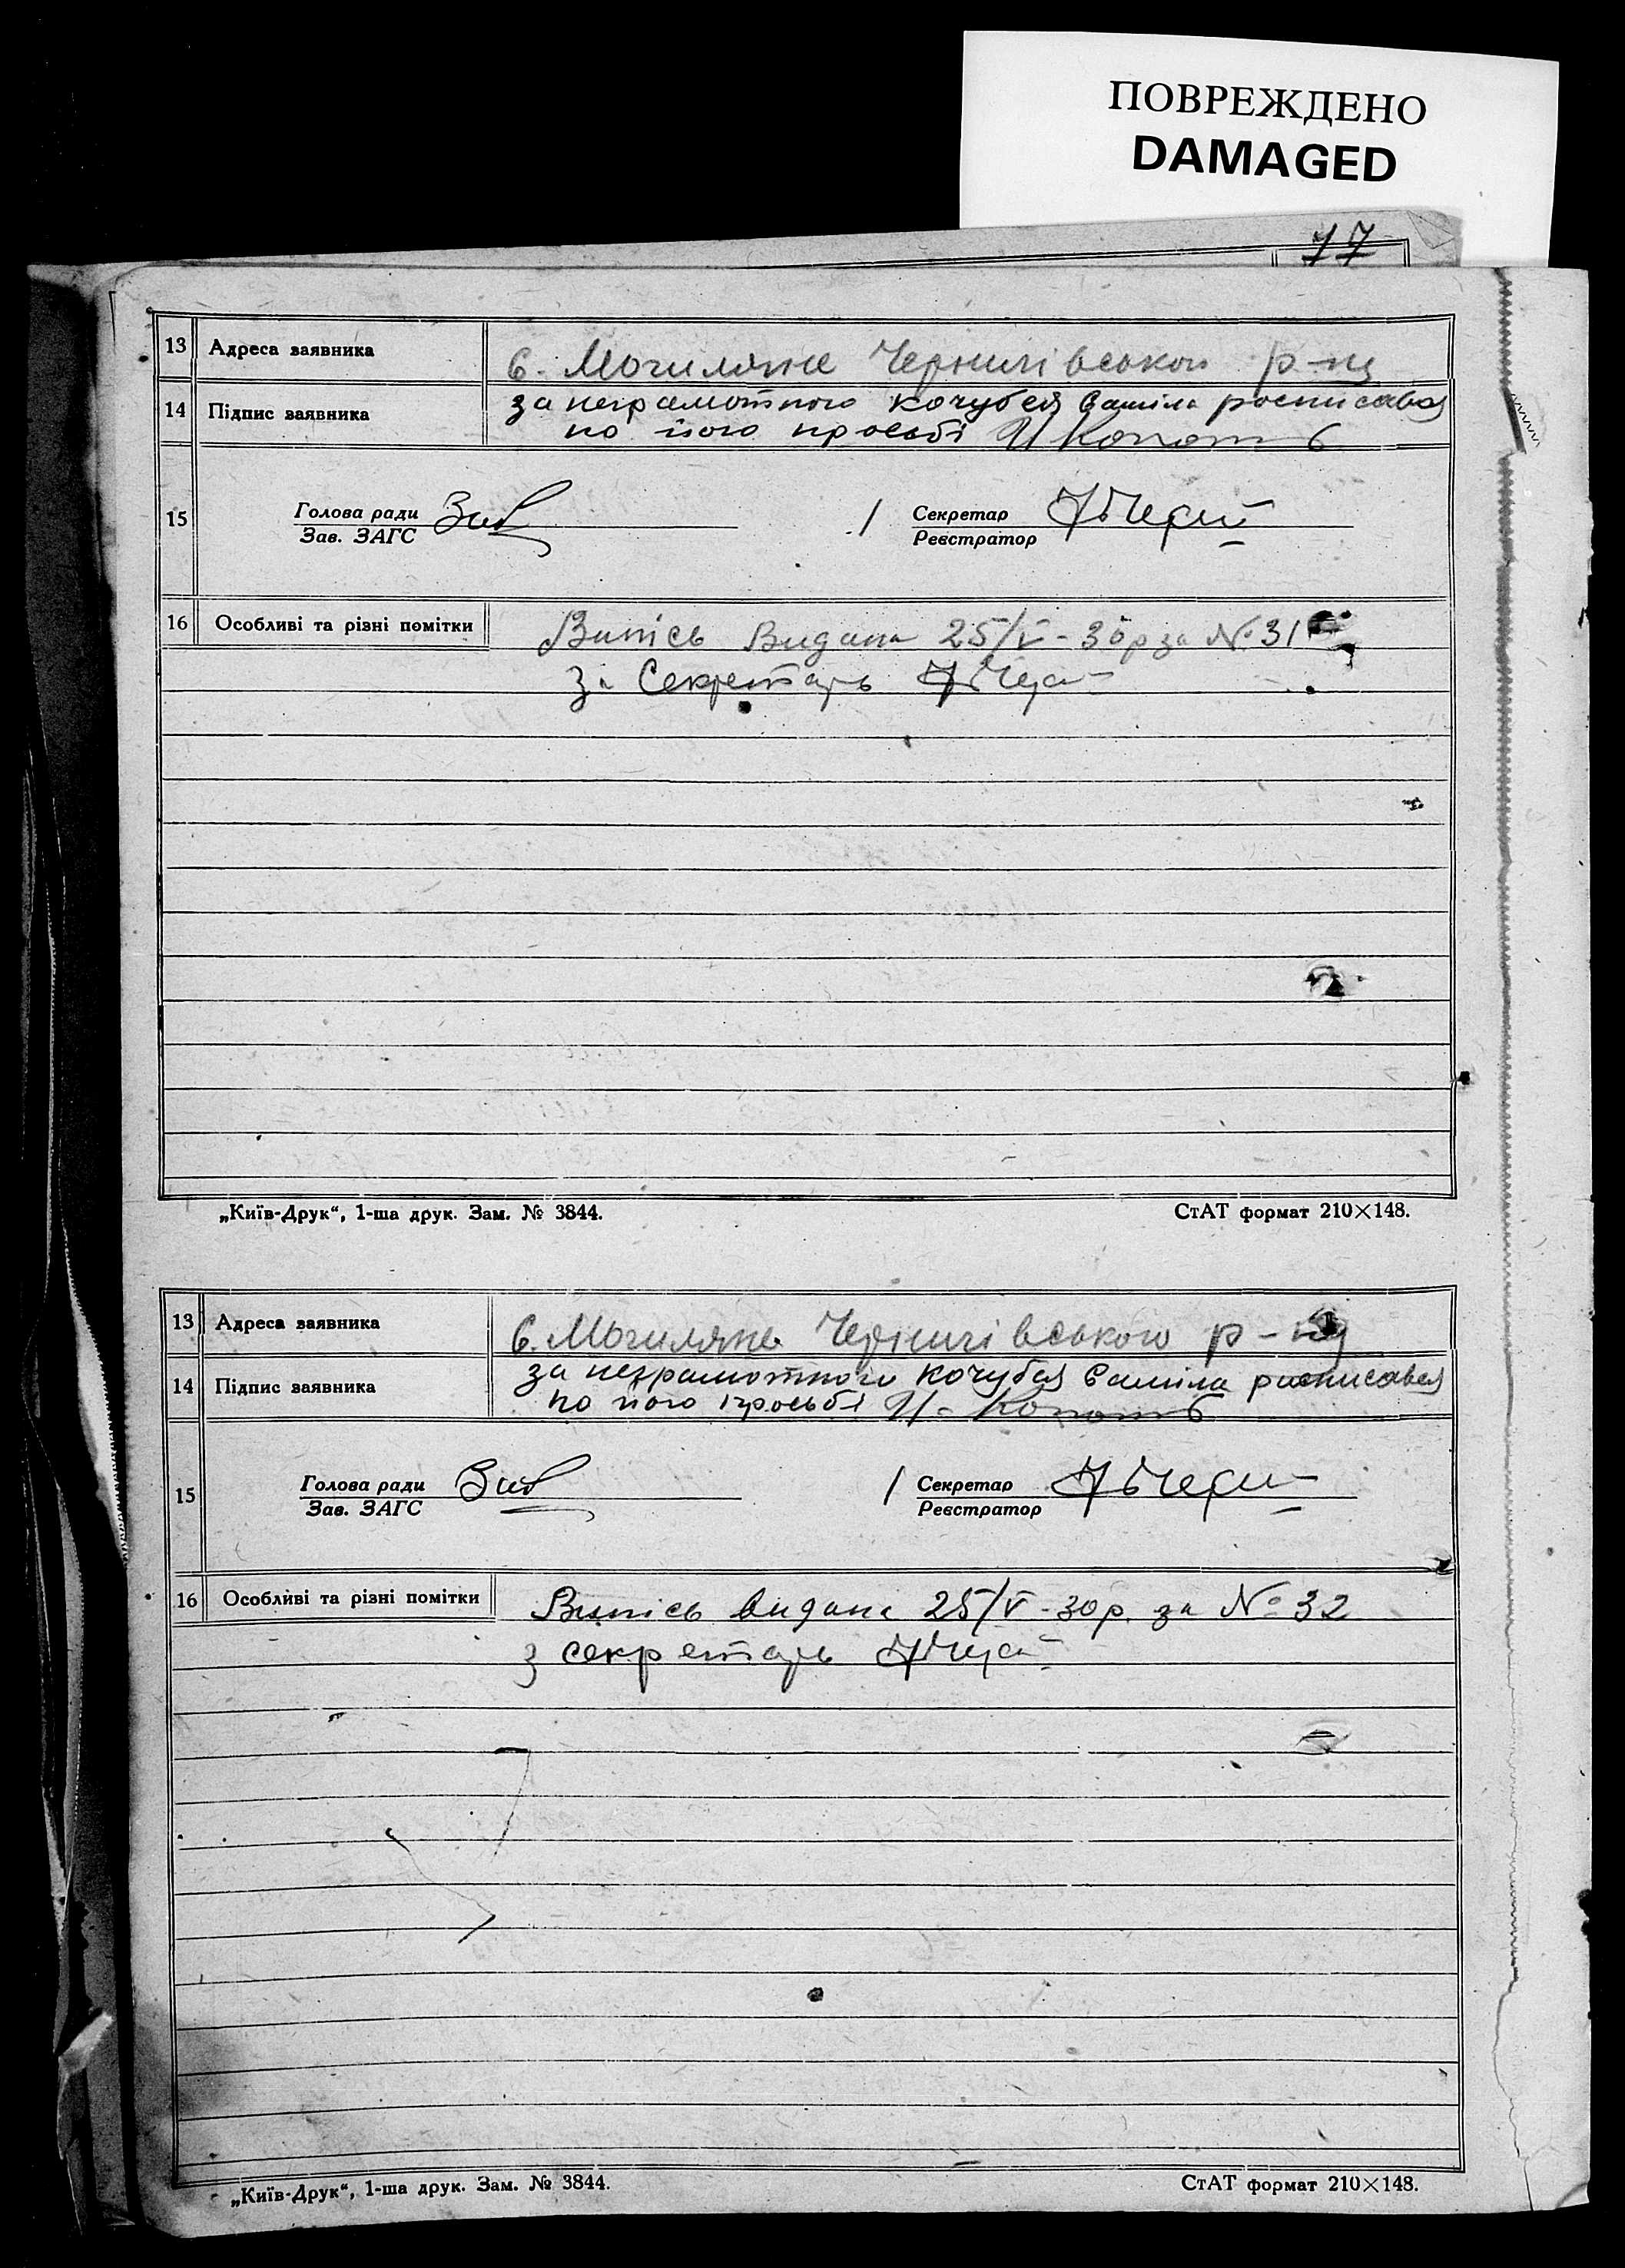 ПОВРЕЖДЕНО
DAMAGED
17
13 Адреса заявника с. Могиляне Чернигівського р-ну
14 Підпис заявника за неграмотного Кочубея Саміла росписався
по його просьбі И Копоть
15 Голова ради / Секретар
Зав. ЗАГС Реєстратор
16 Особливі та різні помітки Випісь Видана 25/V-30р за № 31
За Секретарь
„Київ-Друк“, 1-ша друк. Зам. № 3844. СтАТ формат 210×148.
13 Адреса заявника с. Могиляне Чернигівського р-ну
14 Підпис заявника за неграмотного Кочубея Саміла росписався
по його просьбі И. Копоть
15 Голова ради / Секретар
Зав. ЗАГС Реєстратор
16 Особливі та різні помітки Випісь видана 25/V-30р. за № 32
з секретарь
„Київ-Друк“, 1-ша друк. Зам. № 3844. СтАТ формат 210×148.